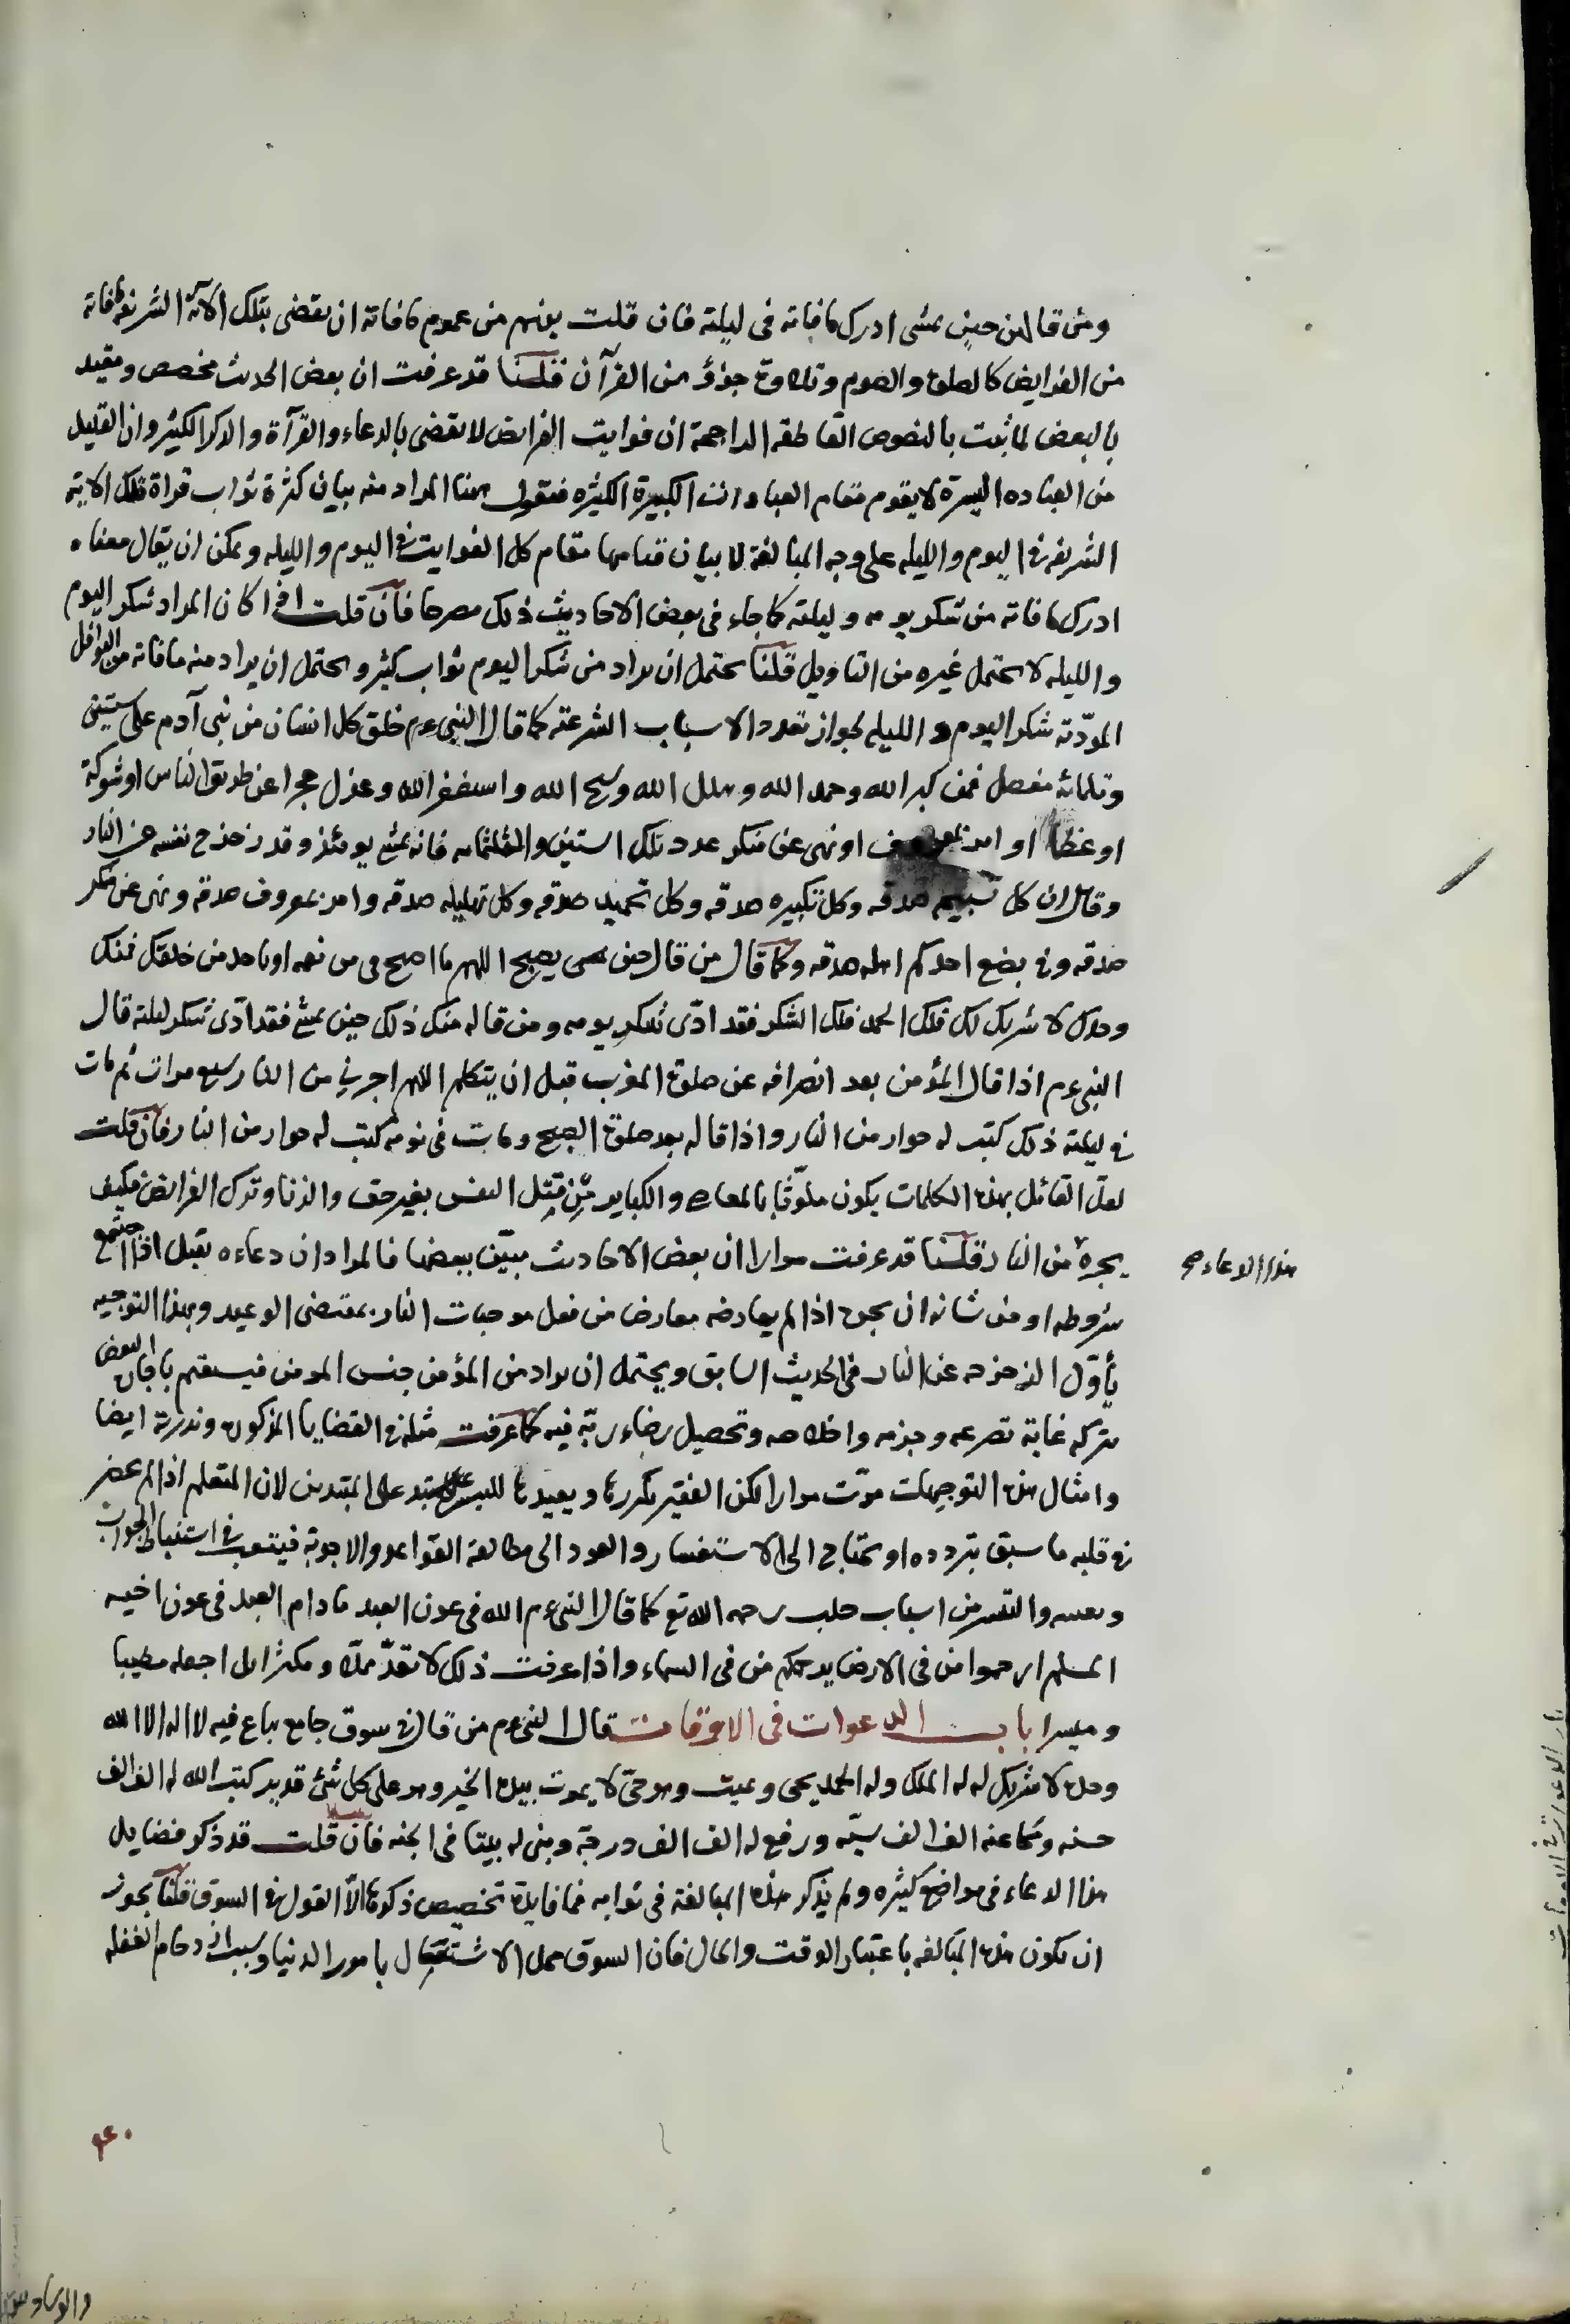 ومن قالهن حين يمسى ادرك ما فاته فى ليلته فان قلت يفهم من عموم ما فاته ان يقضى بتلك الآية الشريفة ما فاته
من الفرايض كالصلوة والصوم وتلاوة جزؤ من القرآن قلنا قد عرفت ان بعض الحديث مخصص ومقيد
بالبعض لما ثبت بالنصوص القاطعه الراجحة ان فوايت الفرايض لا تقضى بالدعاء والقرآة والذكر الكثير وان القليل
من العباده اليسرة لا يقوم مقام العبادات الكبيرة الكثيره فنقول ههنا المراد منه بيان كثرة ثواب قراة تلك الاية
الشريفه فى اليوم والليله على وجه المبالغة لا بيان قيامها مقام كل الفوايت فى اليوم والليله ويمكن ان يقال معناه
ادرك ما فاته من شكر يومه وليلته كما جاء فى بعض الاحاديث ذلك مصرحا فان قلت اذا كان المراد شكر اليوم
والليله لا يحتمل غيره من التاويل قلنا يحتمل ان يراد من شكر اليوم ثواب كثير ويحتمل ان يراد منه ما فاته من النوافل
المؤدّية شكر اليوم والليله لجواز تعدد الاسباب الشرعية كما قال النبى عم خلق كل انسان من بنى آدم على ستين
وثلمائة مفصل فمن كبر الله وحمد الله وهلل الله وسبح الله واستغفر الله وعزل حجرا عن طريق الناس او شوكة
او عظما او امر بمعروف او نهى عن منكر عدد تلك الستين والثلثمايه فانه يمشى يومئذ وقد زحزح نفسه عن النار
وقال ان كل تسبيحه صدقه وكل تكبيره صدقه وكل تحميد صدقه وكل تهليله صدقه وامر بمعروف صدقه ونهى عن منكر
صدقه وفى بضع احدكم اهله صدقه وكما قال من قال حين يصبح اللهم ما اصبح بى من نعمه او باحد من خلقك فمنك
وحدك لا شريك لك فلك الحمد فلك الشكر فقد ادّى شكر يومه ومن قاله مثل ذلك حين يمسى فقد ادّى شكر ليلته قال
النبى عم اذا قال المؤمن بعد انصرافه عن صلوة المغرب قبل ان يتكلم اللهم اجرنى من النار سبع مرات ثم مات
فى ليلته ذلك كتب له جوار من النار واذا قاله بعد صلوة الصبح ومات فى يومه كتب له جوار من النار فان قلت
لعل القائل بهذه الكلمات يكون ملوّثا بالمعاصى والكباير مثل قتل النفس بغير حق والزنا وترك الفرايض فكيف
يجره من النار قلنا قد عرفت مرارا ان بعض الاحاديث مبيّن ببعضها فالمراد ان دعاءه يقبل اذا اجتمع
هذا الدعاء صح
شروطه او من شانه ان يجره اذا لم يعارضه معارض من فعل موجبات النار بمقتضى الوعيد وبهذا التوجيه
يأوّل الزحزحه عن النار فى الحديث السابق ويحتمل ان يراد من المؤمن جنس المومن فيستقيم باجابة البعض
ببركة غاية تضرعه وجزمه واخلاصه وتحصيل رضاء ربّه فيه كما عرفت مثله فى القضايا المذكورة وندرته ايضا
وامثال هذه التوجيهات مرّت مرارا لكن الفقير يكررها ويعيدها على المبتدين لان المتعلم اذا لم يحضر
فى قلبه ما سبق بتردده او يحتاج الى الاستفسار والعود الى مطالعة القواعد والاجوبة فيتعب فى استنباط الجواب
والتفسير من اسباب جلب رحمه الله تع كما قال النبى عم الله فى عون العبد ما دام العبد فى عون اخيه
المسلم ارحموا من فى الارض يرحمكم من فى السماء واذا عرفت ذلك لا تعدّ مملا ومكثرا بل اجعله مطيبا
وميسرا باب الدعوات فى الاوقات قال النبى عم من قال فى سوق جامع يباع فيه لا اله الا الله
وحده لا شريك له له الملك وله الحمد يحيى ويميت وهو حىّ لا يموت بيده الخير وهو على كل شئ قدير كتب الله له الف الف
حسنه ومحا عنه الف الف سيّه ورفع له الف الف درجة وبنى له بيتا فى الجنه فان قلت قد ذكر فضايل
هذا الدعاء فى مواضع كثيره ولم يذكر هذه المبالغة فى ثوابه فما فايدة تخصيص ذكرها الا القول فى السوق قلنا يجوز
ان يكون هذه المبالغه باعتبار الوقت والحال فان السوق محل الاشتغال بامور الدنيا وسبب ازدحام الغفله
والوساوس